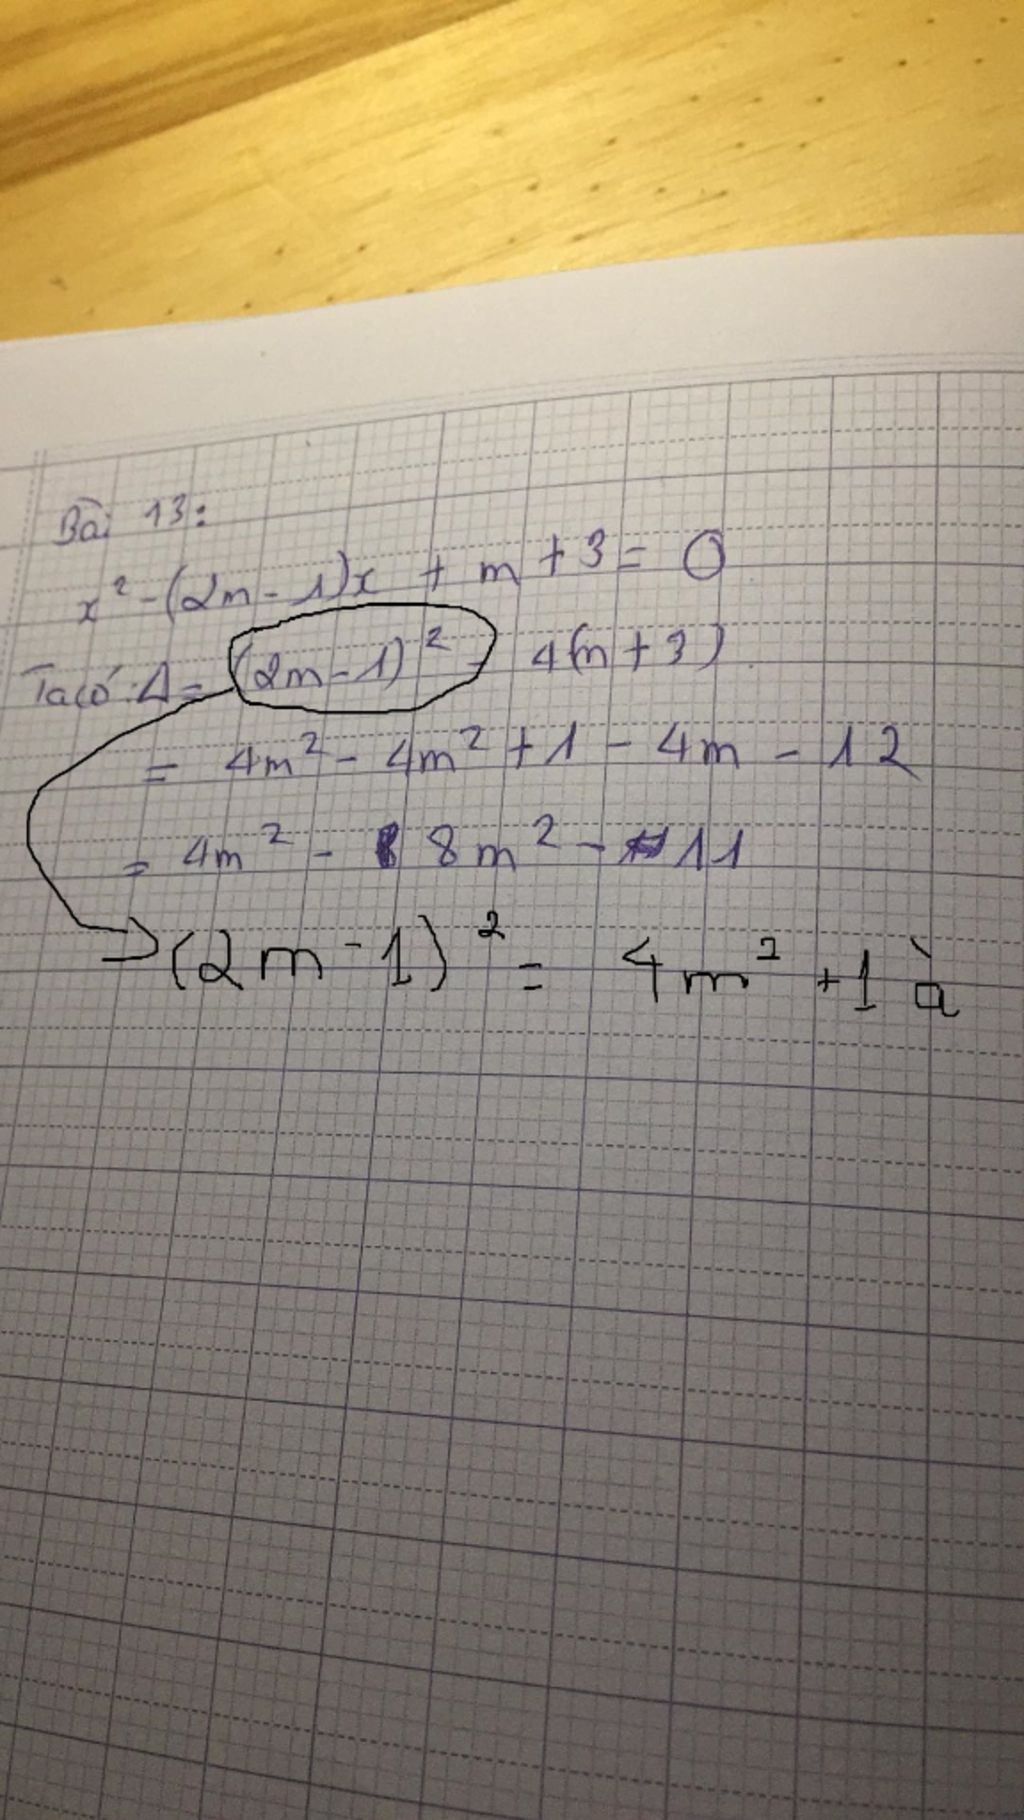 Bài 13:
x² - (2m - 1)x + m + 3 = 0
Ta có: Δ = (2m - 1)² - 4(m + 3)
= 4m² - 4m² + 1 - 4m - 12
= 4m² - 8m² - 11
(2m - 1)² = 4m² + 1 à